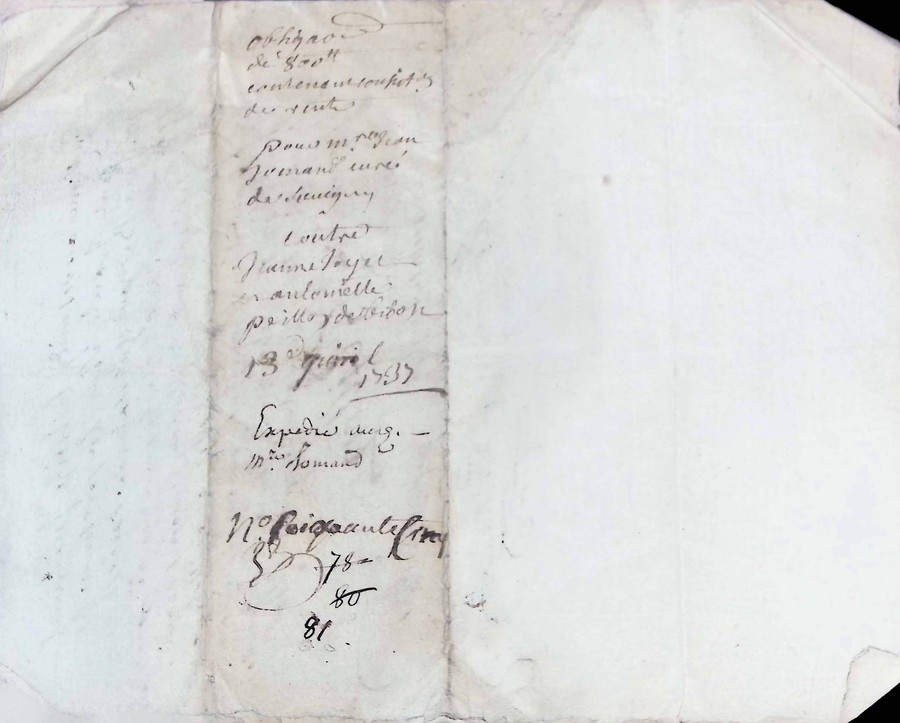 obligaon
de 800tt
contenant constit on
de rente
pour mre Jean
Jomand curé
de
contre
Jeanne
et antoinette
peillo
13e avril
1737
Expedié aud.
mre Jomand
No. Coiquante Cinq
78
80
81